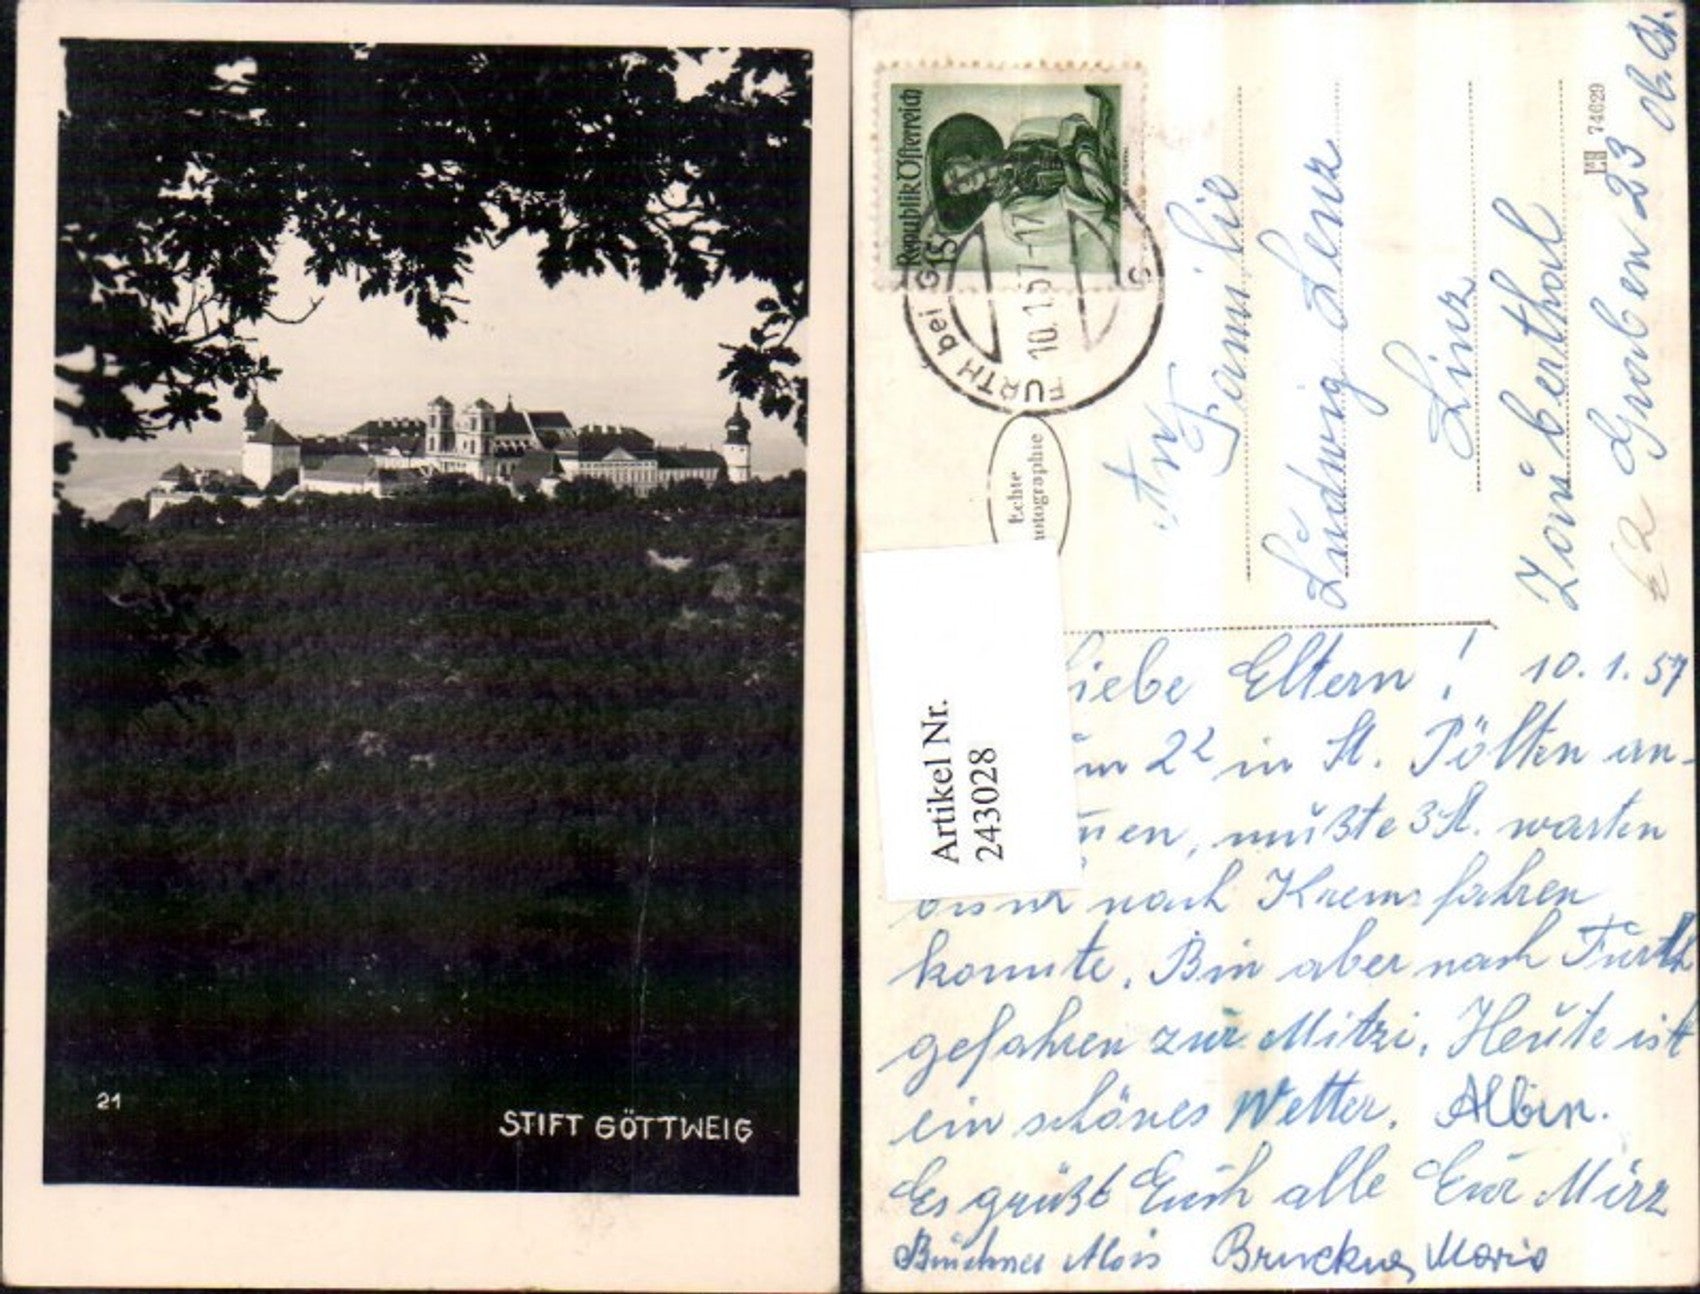 21
STIFT GÖTTWEIG
Republik Österreich
FURTH bei GÖ
10.1.57-17
S
Echte
Photographie
74629
An
Familie
Ludwig Lenz
Linz
Zaubertal
Graben 23 Ob. Öst.
€2
Artikel Nr.
243028
Liebe Eltern! 10.1.57
um 2² in St. Pölten an-
mußte 3 St. warten
bis ich nach Krems fahren
konnte. Bin aber nach Furth
gefahren zur Mitzi. Heute ist
ein schönes Wetter. Albin.
Es grüßt Euch alle Eur Mirz
Alois Bruckner Maria